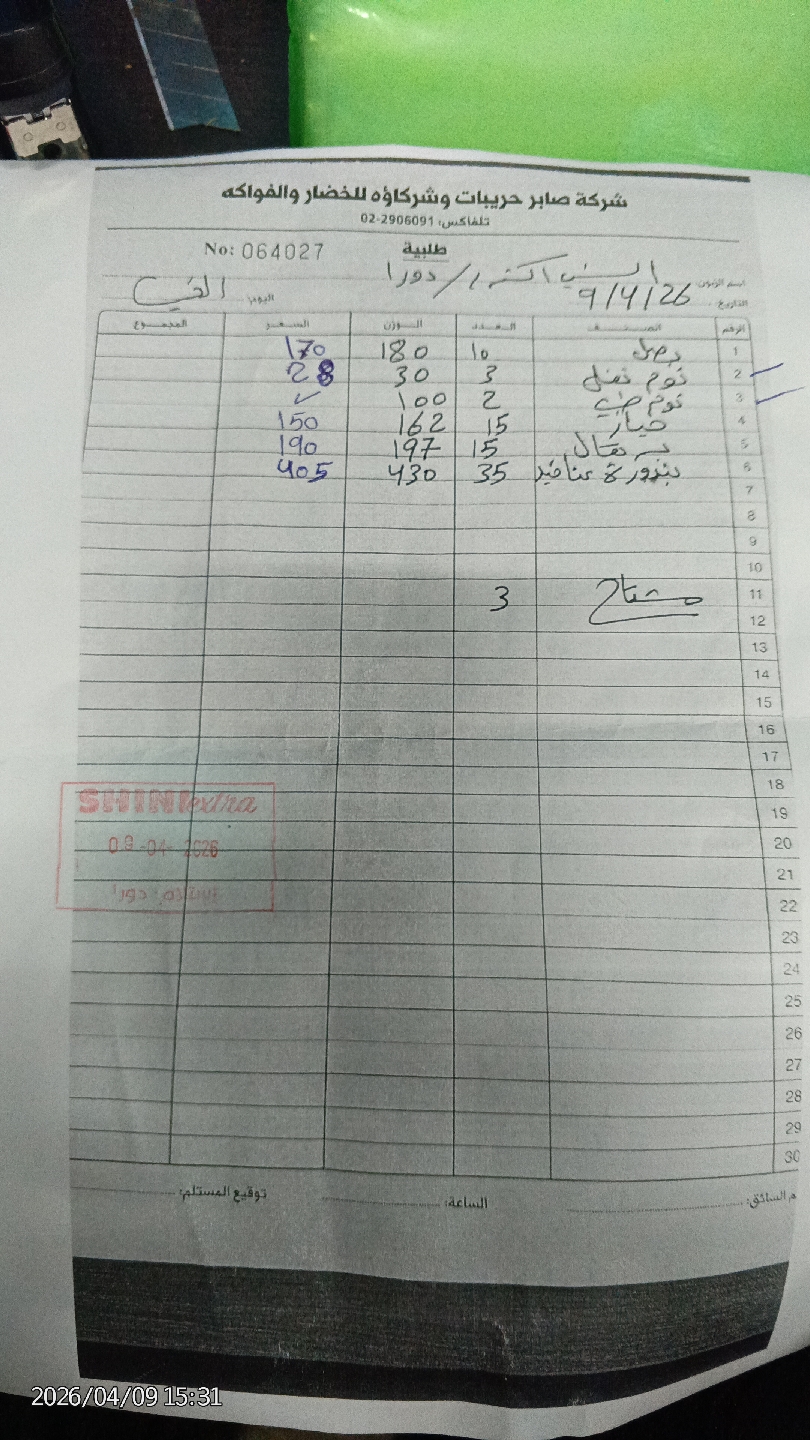 شركة صابر حريبات وشركاؤه للخضار والفواكه
تلفاكس: 02-2906091
طلبية No: 064027
اسم الزبون: الشني اكسترا / دورا
التاريخ: 9/4/26 اليوم:
الرقم الصنف العدد الوزن السعر المجموع
1 بصل 10 180 170
2 ثوم نفل 3 30 28
3 ثوم 2 100 ✓
4 خيار 15 162 150
5 برتقال 15 197 190
6 بندورة عناقيد 35 430 405
7
8
9
10
11 مشتاح 3
12
13
14
15
16
17
18
19
20
21
22
23
24
25
26
27
28
29
30
SHINI extra
09-04-2026
استلام دورا
م السائق: الساعة: توقيع المستلم:
2026/04/09 15:31